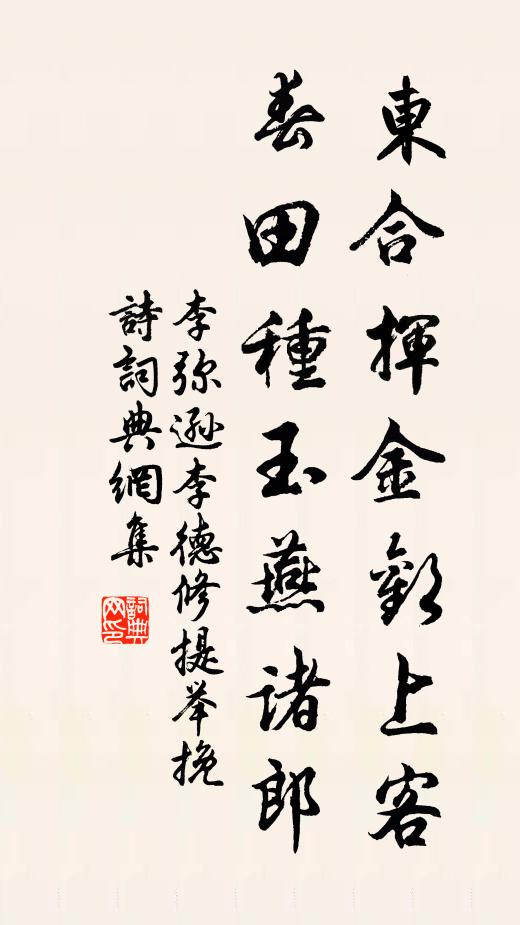 東合揮金歡上客
春田種玉燕諸郎
李弥遜李德修提举挽
詩詞典網集
詞典網印